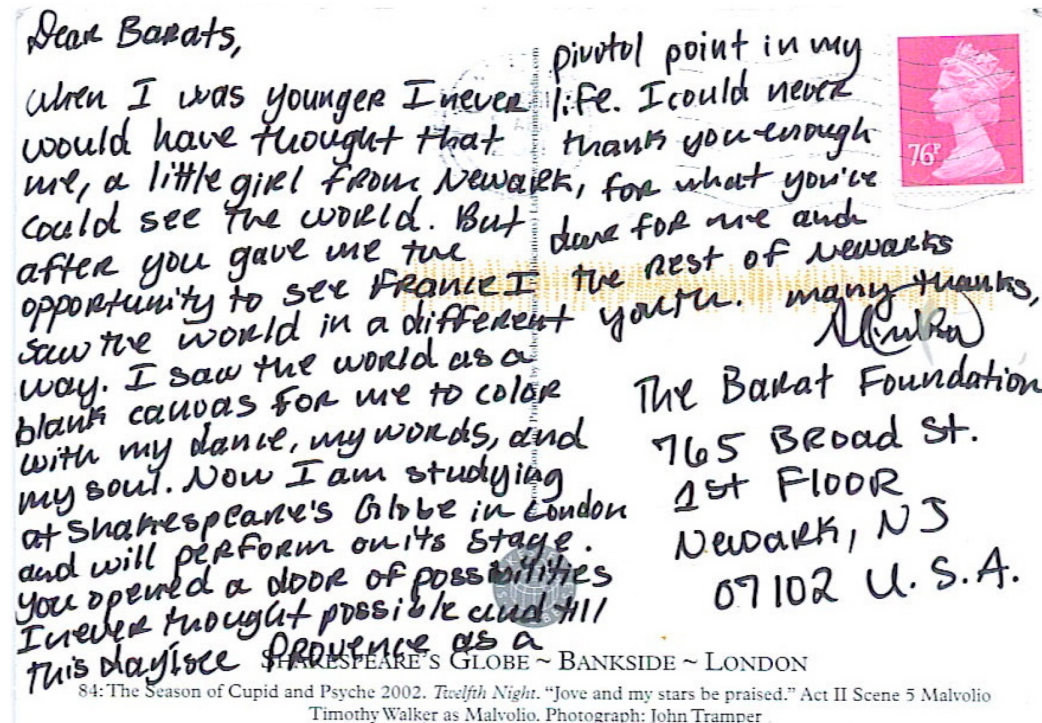 Dear Barats,
when I was younger I never
would have thought that
me, a little girl from Newark,
could see the world. But
after you gave me the
opportunity to see France I
saw the world in a different
way. I saw the world as a
blank canvas for me to color
with my dance, my words, and
my soul. Now I am studying
at Shakespeare's Globe in London
and will perform on its stage.
You opened a door of possibilities
I never thought possible and till
this day I see Provence as a
pivotol point in my
life. I could never
thank you enough
for what you've
done for me and
the rest of Newarks
youth. many thanks,
76P
The Barat Foundation
765 Broad St.
1st Floor
Newark, NJ
07102 U.S.A.
SHAKESPEARE'S GLOBE ~ BANKSIDE ~ LONDON
84: The Season of Cupid and Psyche 2002. Twelfth Night. "Jove and my stars be praised." Act II Scene 5 Malvolio
Timothy Walker as Malvolio. Photograph: John Tramper